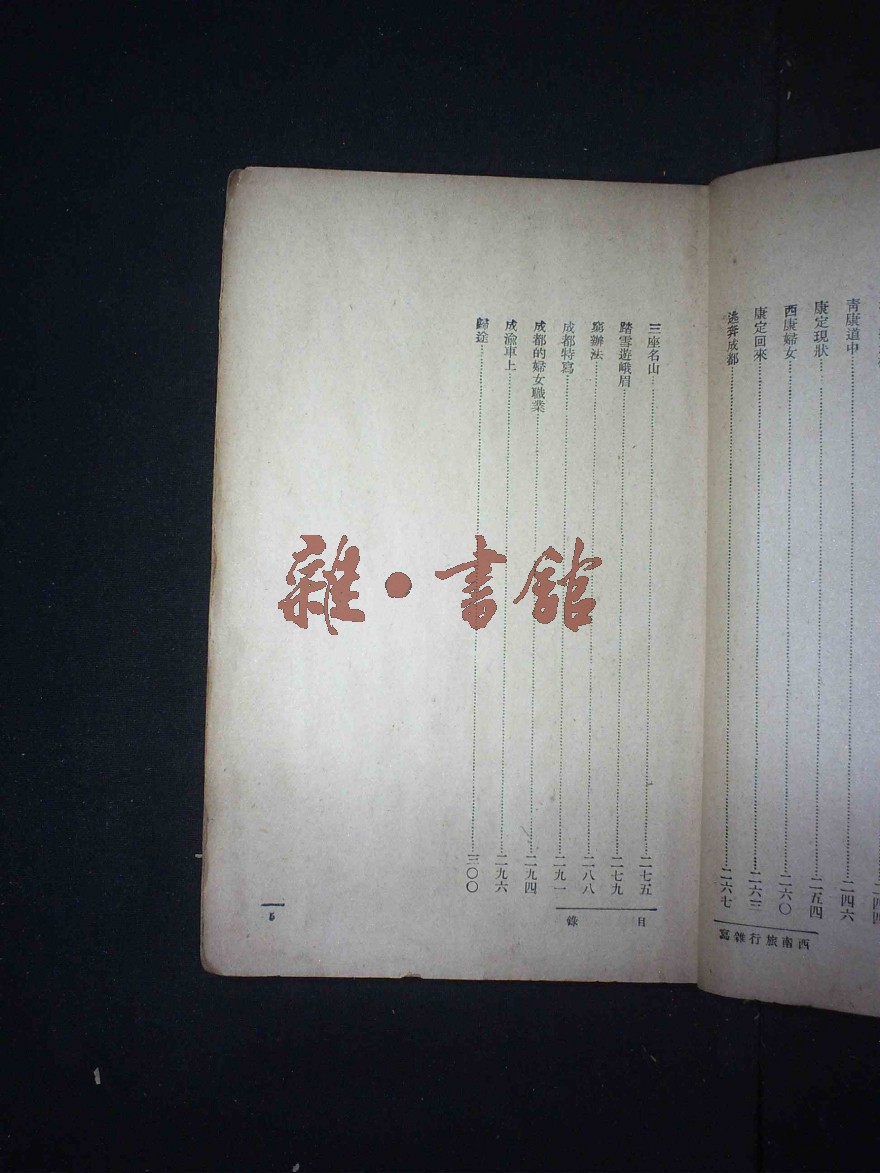 二四四
青康道中……二四六
康定現狀……二五四
西康婦女……二六〇
康定回來……二六三
逃奔成都……二六七
西南旅行雜寫
三座名山……二七五
踏雪遊峨眉……二七九
窮辦法……二八八
成都特寫……二九一
成都的婦女職業……二九四
成渝車上……二九六
歸途……三〇〇
目錄
5
雜·書館